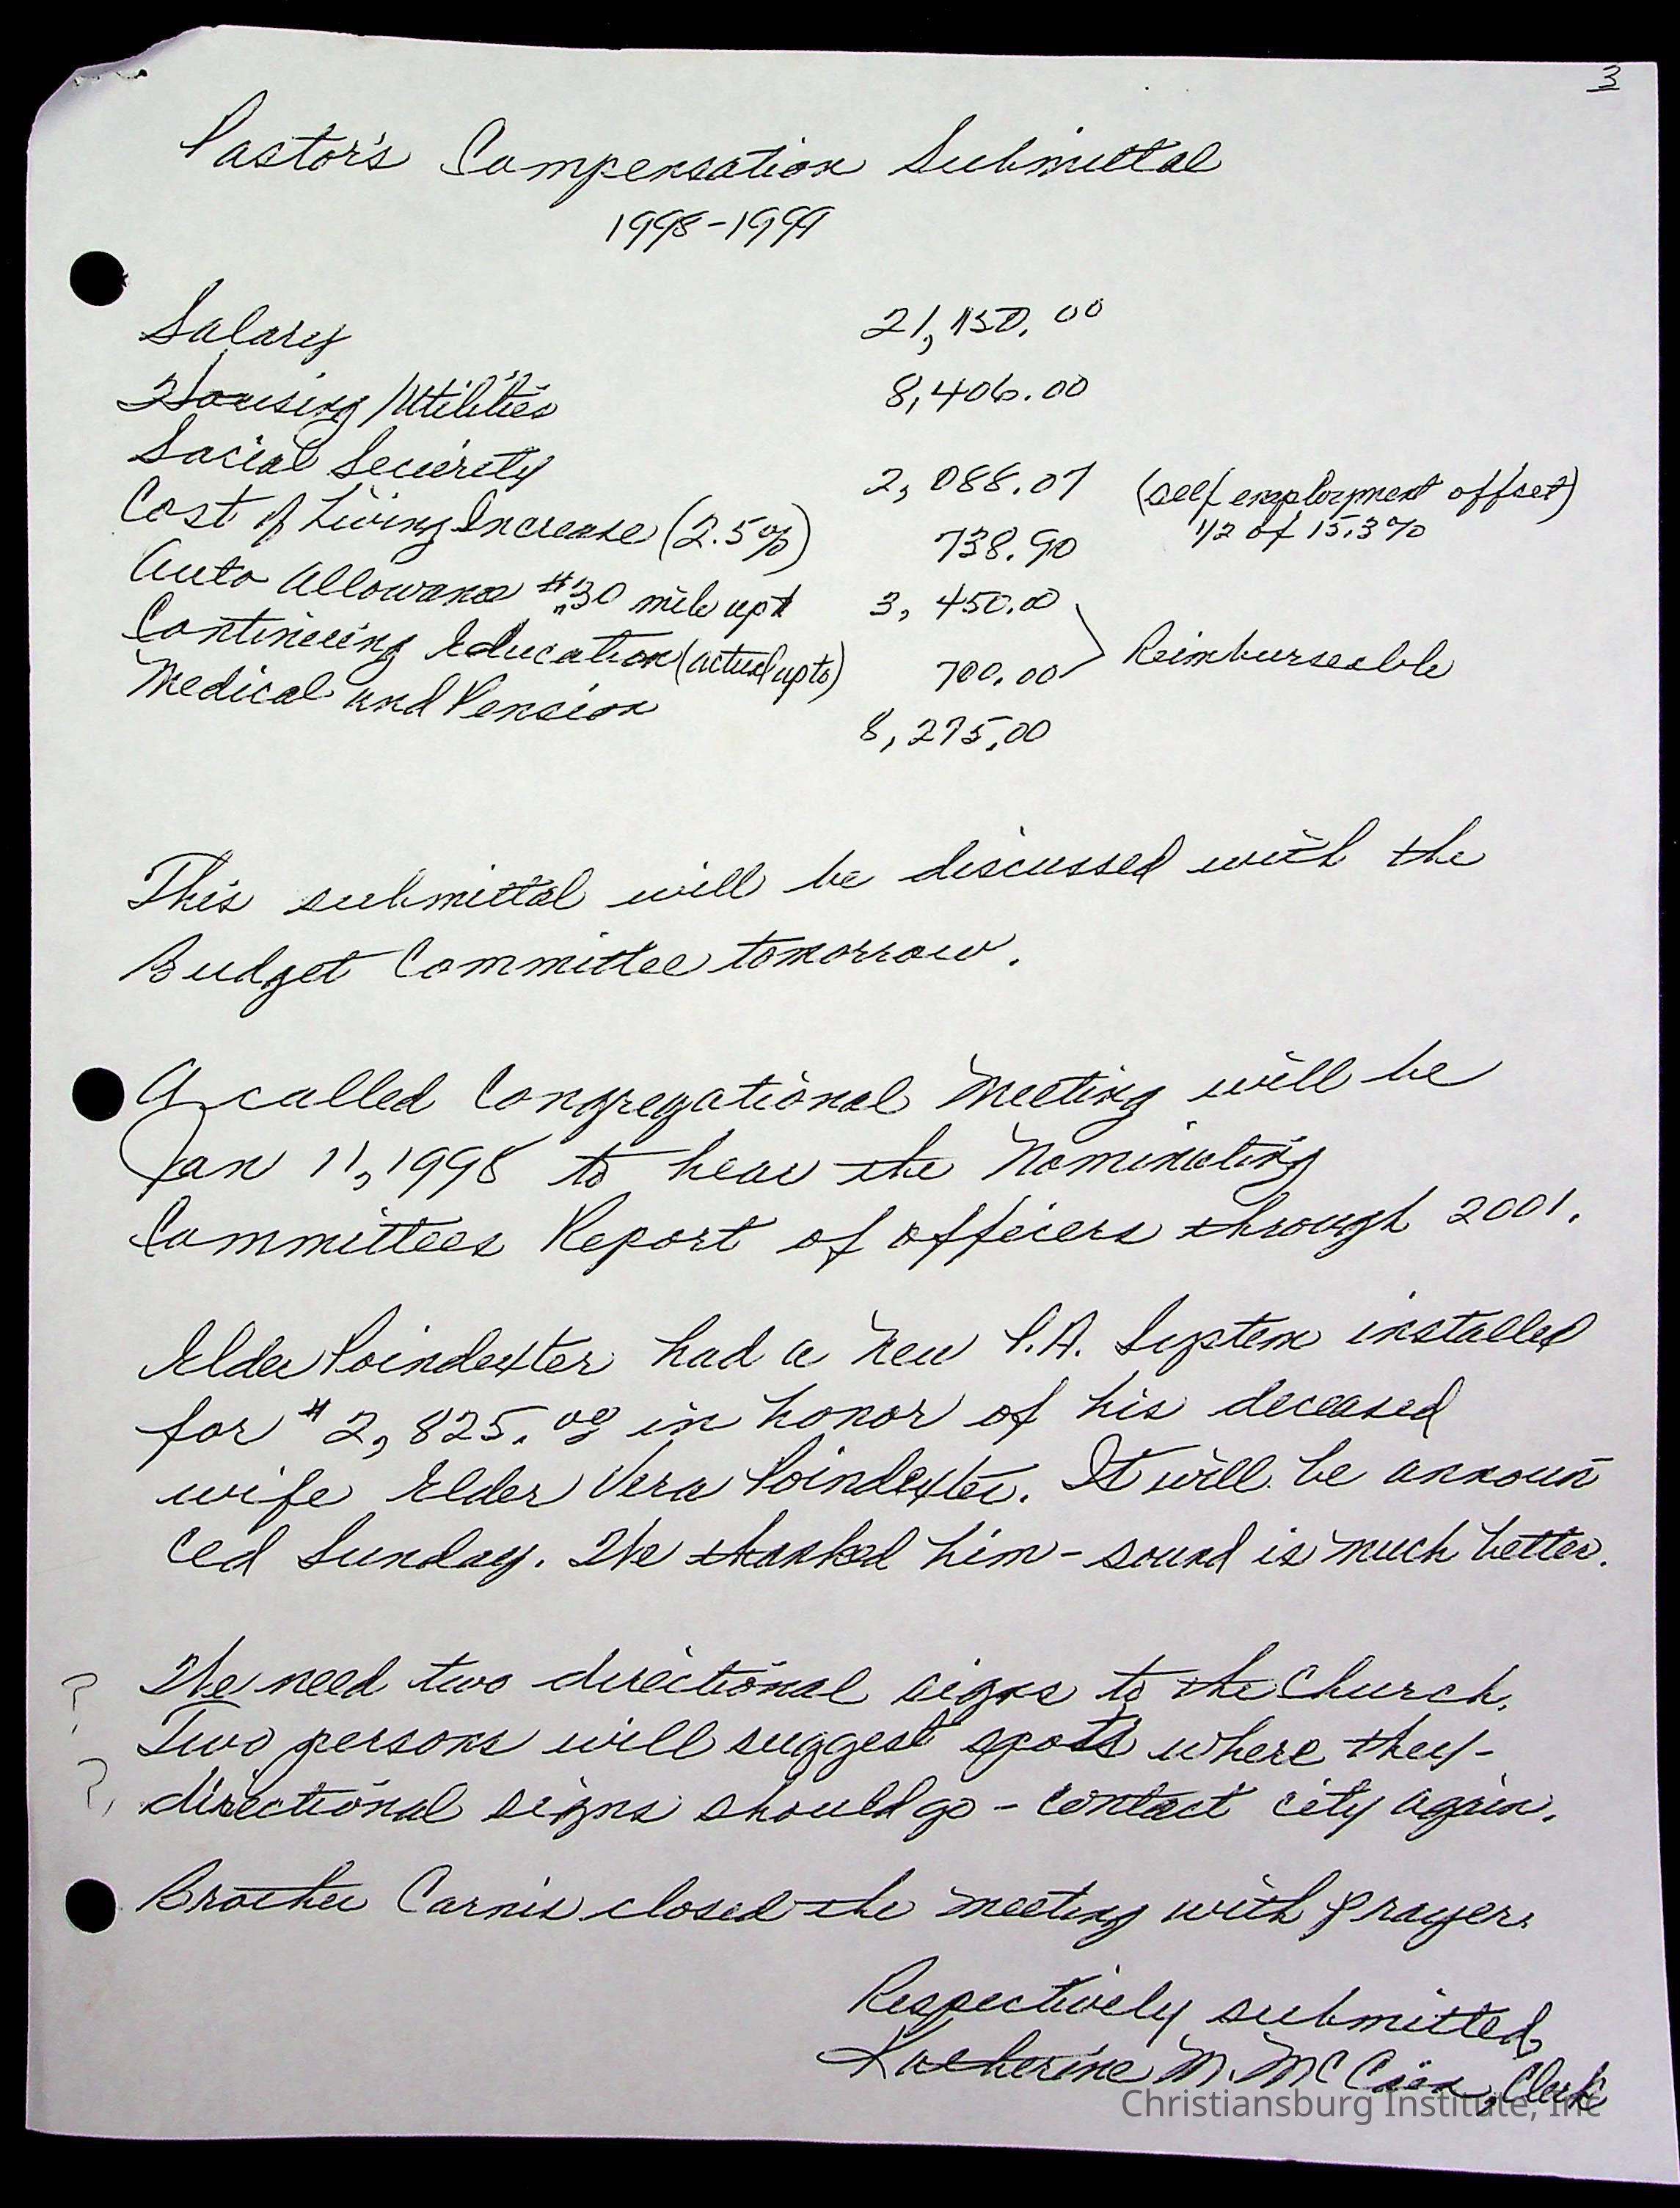 3
Pastor's Compensation Submittal
1998-1999
Salary 21,150.00
Housing/Utilities 8,406.00
Social Security 2,088.07 (self employment offset)
1/2 of 15.3%
Cost of Living Increase (2.5%) 738.90
Auto Allowance $.30 mile upt 3,450.00
Reimburseable
Continuing Education (actual upto) 700.00
Medical and Pension 8,275.00
This submittal will be discussed with the
Budget Committee tomorrow.
A called Congregational Meeting will be
Jan 11, 1998 to hear the Nominating
Committees Report of officers through 2001.
Elder Poindexter had a new P.A. System installed
for $2,825.00 in honor of his deceased
wife Elder Vera Poindexter. It will be announ
ced Sunday. We thanked him - sound is much better.
? We need two directional signs to the Church.
Two persons will suggest spots where they-
? directional signs should go - contact city again.
Brother Carnis closed the meeting with prayer.
Respectively submitted,
Katherine M. Clerk
Christiansburg Institute, Inc